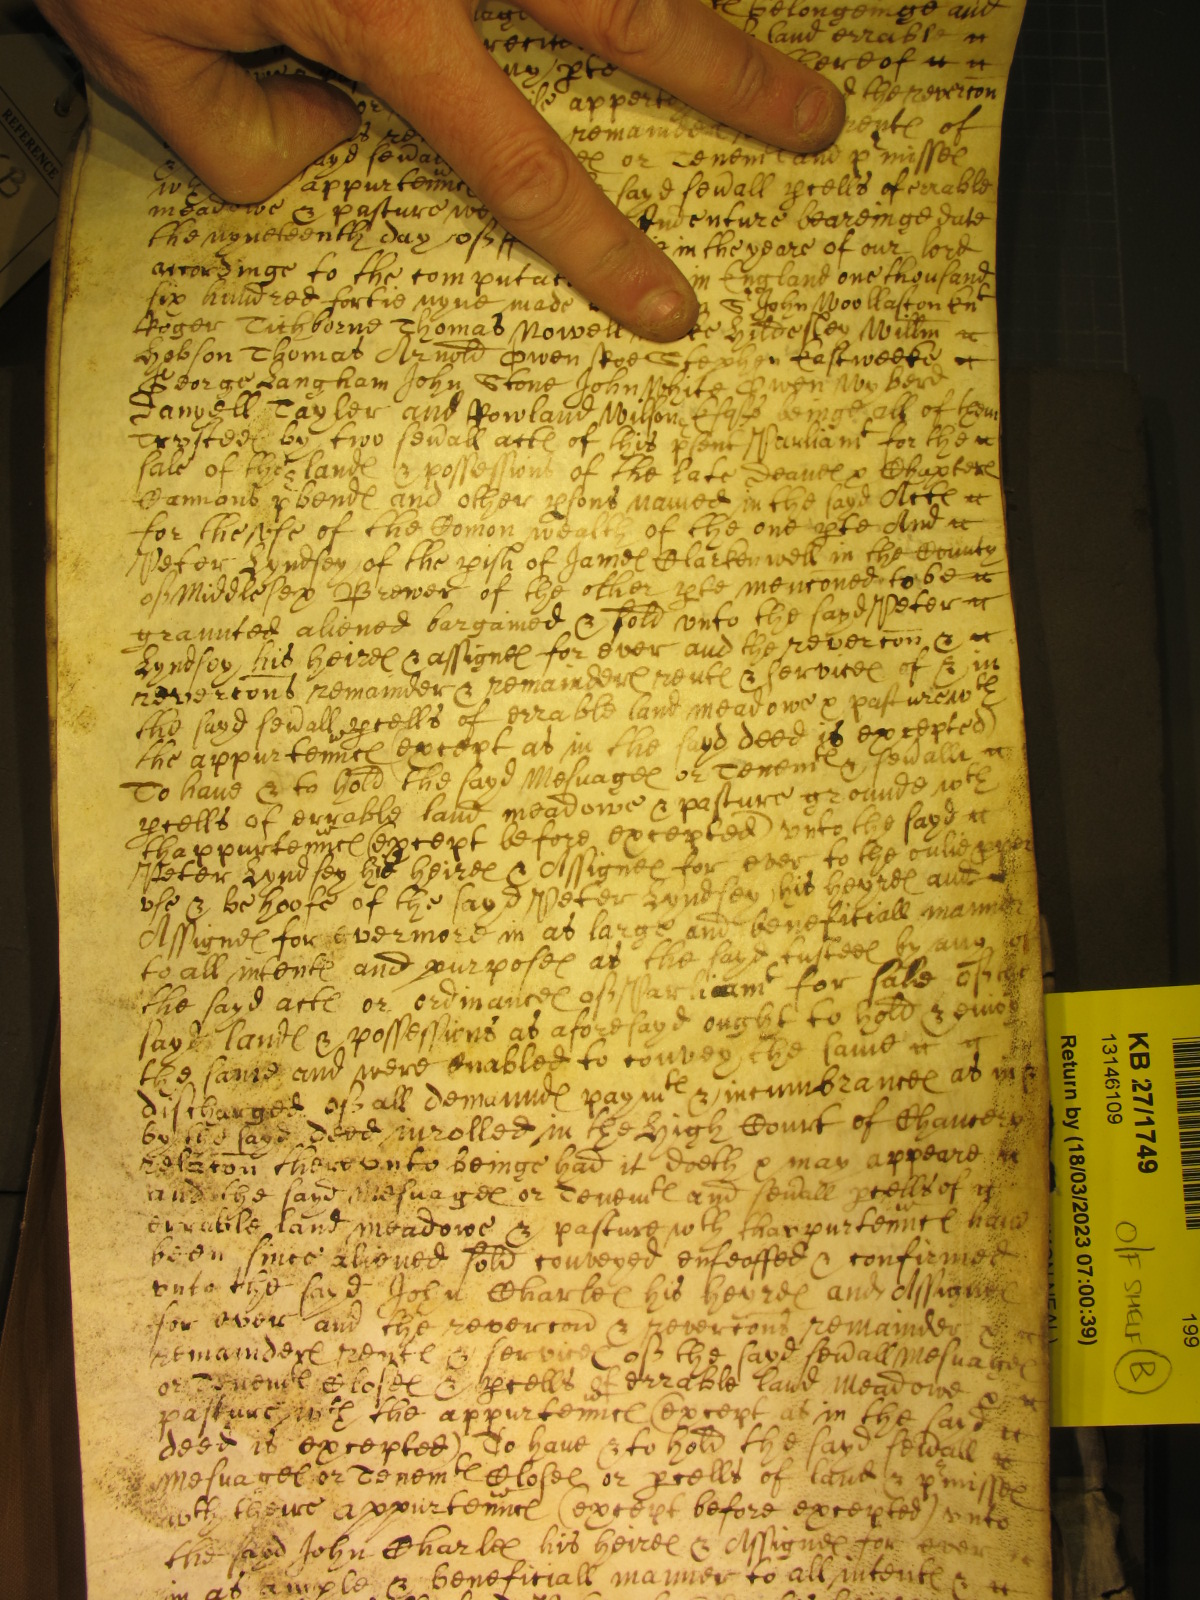 belongeinge and
land errable
thereof
apperte the revercon
remainde rentℓ of
sayd seuall or Tenemtℓ and pʳmisseℓ
appurtenncℓ sayd seuall pcells of errable
meadowe & pasture Indenture beareinge date
the nyneteenth day of in the yeares of our lord
accordinge to the computac in England one thousand
six hundred fortie nyne made Sʳ John Woollaston knᵗ
Roger Tichborne Thomas Nowell Hildesley Willm
Hobson Thomas Arnold Owen Roe Stephen Eastweeke
George Langham John Stone John White Owen Wyberd
Danyell Tayler and Rowland Wilson Esqʳs beinge all of them
Trusteeℓ by two seuall actℓ of this psent Parliamᵗ for the
sale of the landℓ & possessions of the late Deaneℓ & Chapterℓ
Cannons pbendℓ and other psons named in the sayd Actℓ
for the vse of the Comon wealth of the one pte And
Peter Lyndsey of the pish of Jameℓ Clarkenwell in the County
of Middlesex Brewer of the other pte menconed to be
graunted aliened bargained & sold vnto the sayd Peter
Lyndsey his heireℓ & assigneℓ for ever and the revercon &
revercons remainder & remainderℓ rentℓ & serviceℓ of & in
the sayd seuall pcells of errable land meadowe & pasture wᵗʰ
the appurtenncℓ (except as in the sayd deed is excepted)
To have & to hold the sayd Mesuageℓ or Tenemᵗℓ & seuall
pcells of errable land meadowe & pasture grounde wᵗʰ
thappurtenncℓ (except before excepted) vnto the sayd
Peter Lyndsey his heireℓ & Assigneℓ for ever to the onlie pper
vse & behoofe of the sayd Peter Lyndsey his heyreℓ and
Assigneℓ for evermore in as large and beneficiall manner
to all intentℓ and purposeℓ as the sayd trusteeℓ by any of
the sayd actℓ or ordinanceℓ of Parliamᵗ for sale of the
sayd landℓ & possessions as aforesayd ought to hold & enioy
the same and were enabled to convey the same
discharged of all demaundℓ paymᵗℓ & incumbranceℓ as in &
by the sayd deed inrolled in the High Court of Chancery
relacon therevnto beinge had it doeth & may appeare
and the sayd Mesuageℓ or Tenemᵗℓ and seuall pcells of
errable land meadowe & pasture wth thappurtenncℓ have
been since aliened sold conveyed enfeoffed & confirmed
vnto the sayd John Charleℓ his heyreℓ and Assigneℓ
for ever and the revercon & revercons remainder &
remainderℓ rentℓ & serviceℓ of the sayd seuall Mesuageℓ
or Tenemᵗℓ Closeℓ & pcells of errable land Meadowe &
pasture wᵗʰ the appurtenncℓ (except as in the said
deed is excepted) To have & to hold the sayd seuall
Mesuageℓ or Tenemᵗℓ Closeℓ or pcells of land & pʳmisseℓ
wth theire appurtenncℓ (except before excepted) vnto
the sayd John Charleℓ his heireℓ & Assigneℓ for ever
in as ample & beneficiall manner to all intentℓ &
REFERENCE
B
KB 27/1749
13146109
Return by (18/03/2023 07:00:39)
199)
B